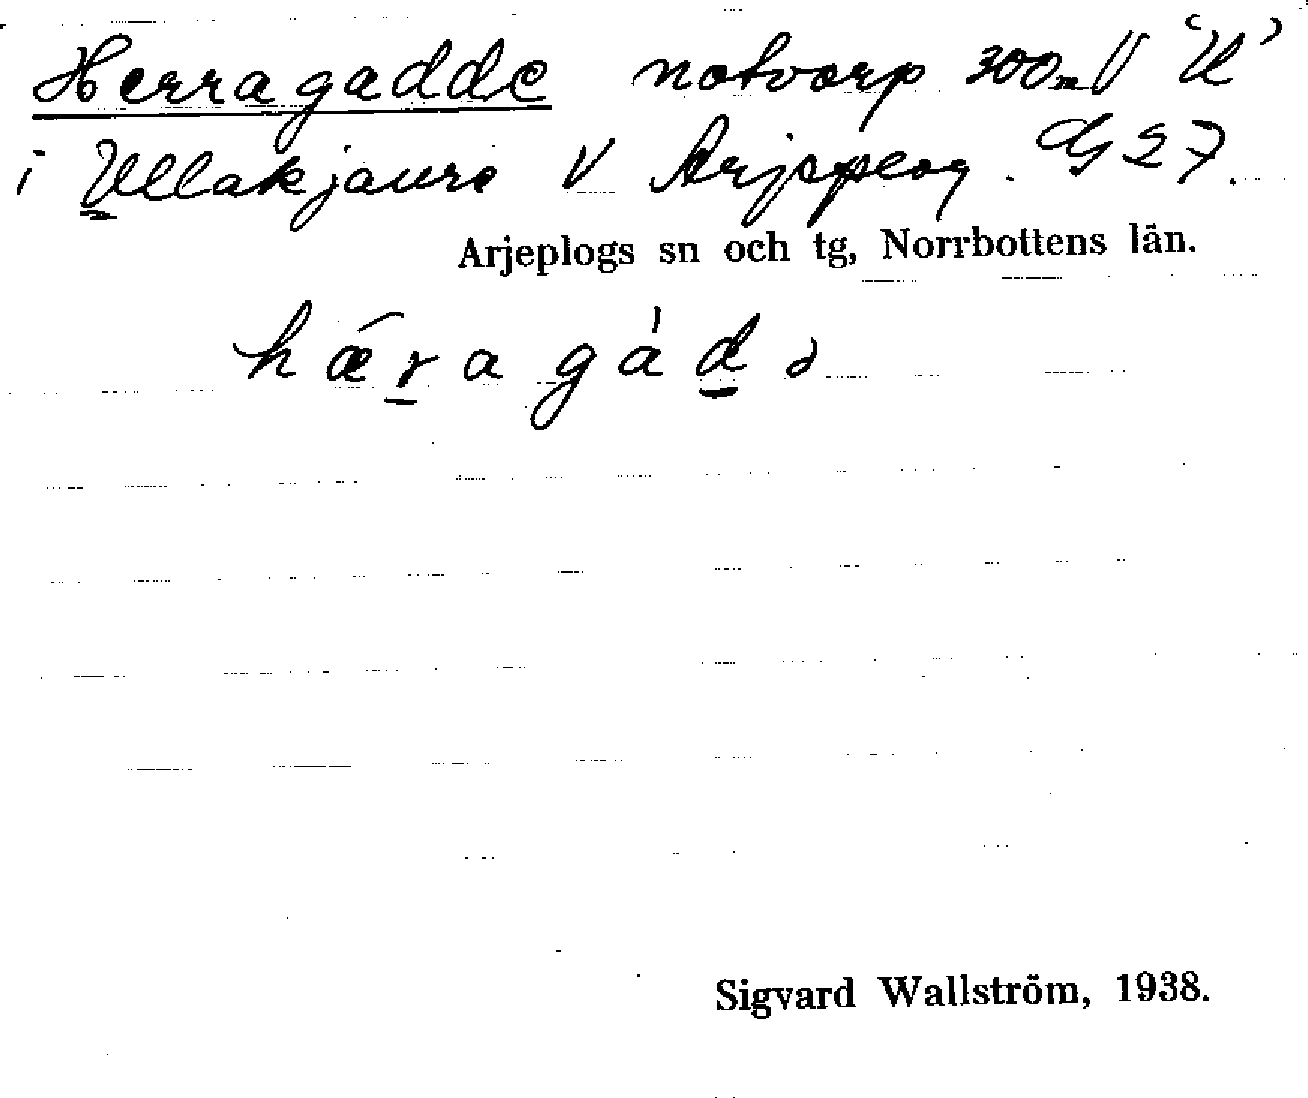 Herragadde notvarp 300m V 'U'
i Ullakjaure V Arjeplog. G27.
Arjeplogs sn och tg, Norrbottens län.
hǣr̲agȧd̲ə
Sigvard Wallström, 1938.